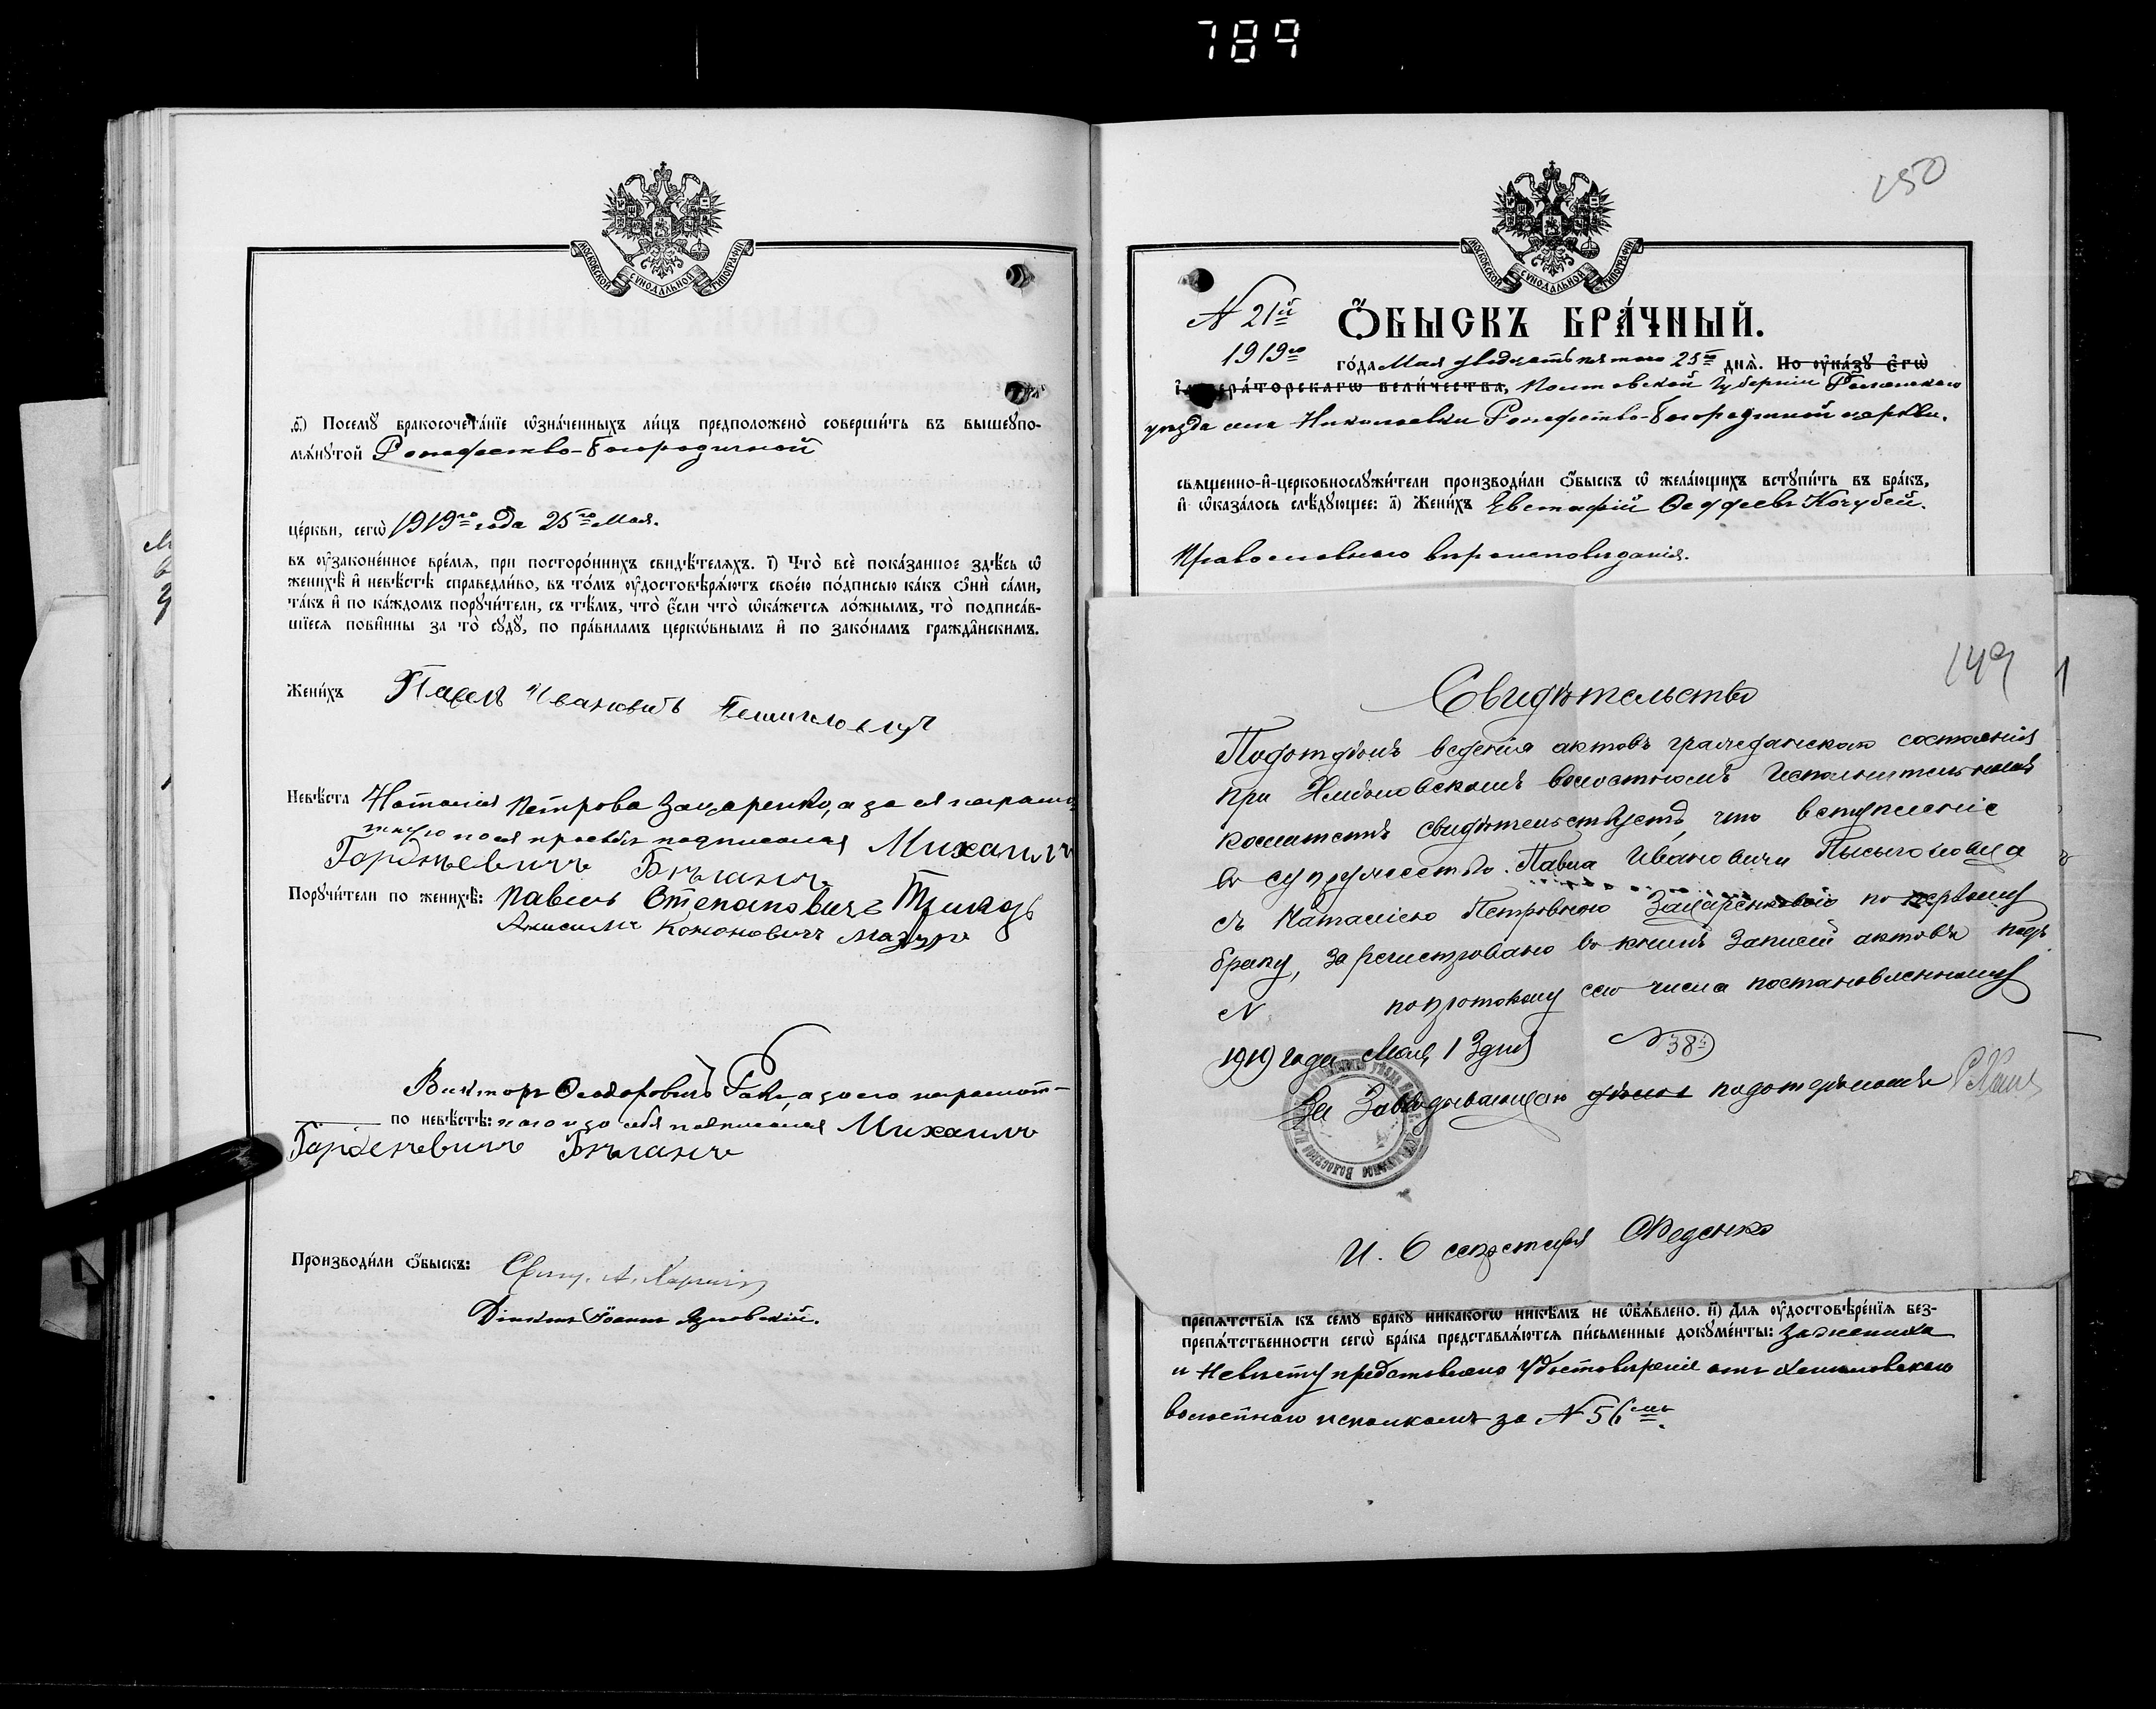 789
МОСКОВСКОЙ СѴНОДАЛЬНОЙ ТИПОГРАФІИ
Посемꙋ̀ бракосочета́нїе ѡ҆зна́ченныхъ ли́цъ предположено̀ соверши́ть въ вышеꙋпо-
мѧ́нꙋтой Рождество-Богородичной
це́ркви, сегѡ̀ 1919го года 25го Мая.
въ ᲂу҆законе́нное вре́мѧ, при посторо́ннихъ свидѣ́телѧхъ. і҃) Что̀ всѐ пока́занное здѣ́сь ѡ҆
женихѣ̀ и҆ невѣ́стѣ справедли́во, въ то́мъ ᲂу҆достовѣрѧ́ютъ свое́ю по́дписью ка́къ ѻ҆нѝ са́ми,
та́къ и҆ по ка́ждомъ порꙋчи́тели, съ тѣ́мъ, что̀ є҆́сли что̀ ѡ҆ка́жетсѧ ло́жнымъ, то̀ подписа́в-
шїесѧ пови́нны за то̀ сꙋдꙋ̀, по пра́виламъ церкѡ́внымъ и҆ по зако́намъ гражда́нскимъ.
Жени́хъ Павелъ Ивановичъ
Невѣ́ста Наталия Петрова Захаренко, а за ея неграмо-
тную по ея просьбѣ подписался Михаилъ
Гордѣевичъ Бѣланъ
Порꙋчи́тели по женихѣ̀: Павелъ Степановичъ
Анисимъ Кононовичъ Мазуръ
Викторъ Ѳеодоровичъ а за его неграмот-
по невѣ́стѣ: наго и за себя подписался Михаилъ
Гордѣевичъ Бѣланъ
Производи́ли ѻ҆́быскъ: Свящ. А.
Діаконъ Іоаннъ
150
МОСКОВСКОЙ СѴНОДАЛЬНОЙ ТИПОГРАФІИ
N 21й
Ѻ҆́БЫСКЪ БРА́ЧНЫЙ.
1919го го́да Мая двадцать пятого 25го днѧ̀. По ᲂу҆ка́зꙋ Є҆гѡ̀
ра́торскагѡ вели́чества, Полтавской Губерніи Роменскаго
уезда села Николаевки Рождество-Богородичной церкви.
свѧще́нно-и҆-церковнослꙋжи́тели производи́ли ѻ҆́быскъ ѡ҆ жела́ющихъ встꙋпи́ть въ бра́къ,
и҆ ѡ҆каза́лось слѣ́дꙋющее: а҃) Жени́хъ Евстафій Ѳаддеевъ Кочубей.
Православного вѣроисповѣданія.
149
Свидѣтельство
Подотдѣлъ веденія актовъ гражданскаго состоянія
при волостномъ Исполнительномъ
комитетѣ свидѣтельствуетъ, что вступленіе
въ супружество Павла Ивановича
съ Наталіею Петровною Захаренковою по первому
браку, зарегистровано въ книгѣ Записей актовъ подъ
N по протоколу сего числа постановленному
1919 года Мая 13 дня N 38
За Завѣдывающаго дѣлом подотдѣломъ
И. О секретаря
препѧ́тствїѧ къ семꙋ̀ бра́кꙋ никако́гѡ никѣ́мъ не ѡ҆б̾ѧ́влено. и҃) Длѧ ᲂу҆достовѣре́нїѧ без-
препѧ́тственности сегѡ̀ бра́ка представлѧ́ютсѧ пи́сьменные докꙋме́нты: за жениха
и Невѣсту представлено Удостовѣреніе отъ
волостного исполкома за N 56мъ.